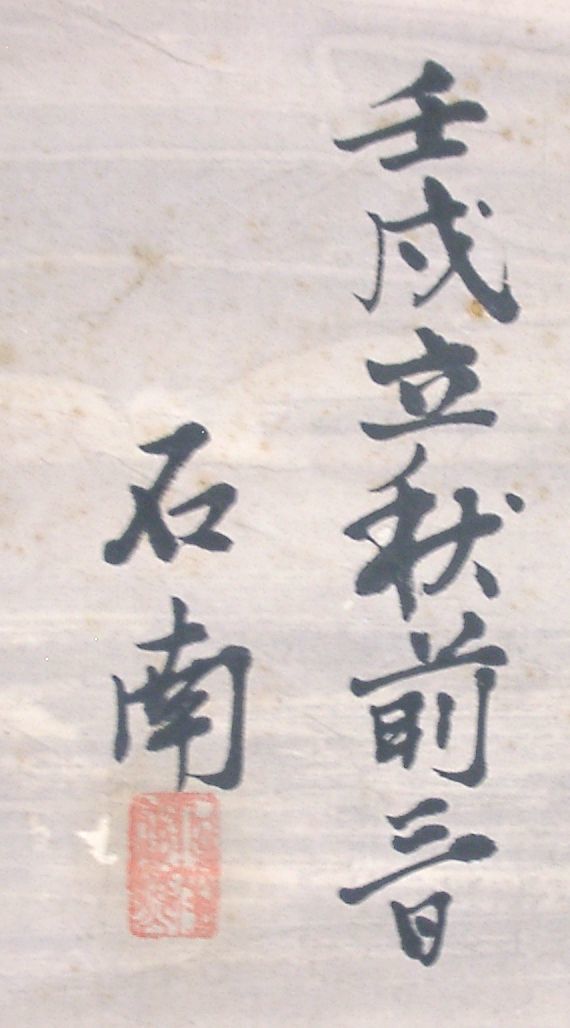 壬戌立秋前三日
石南